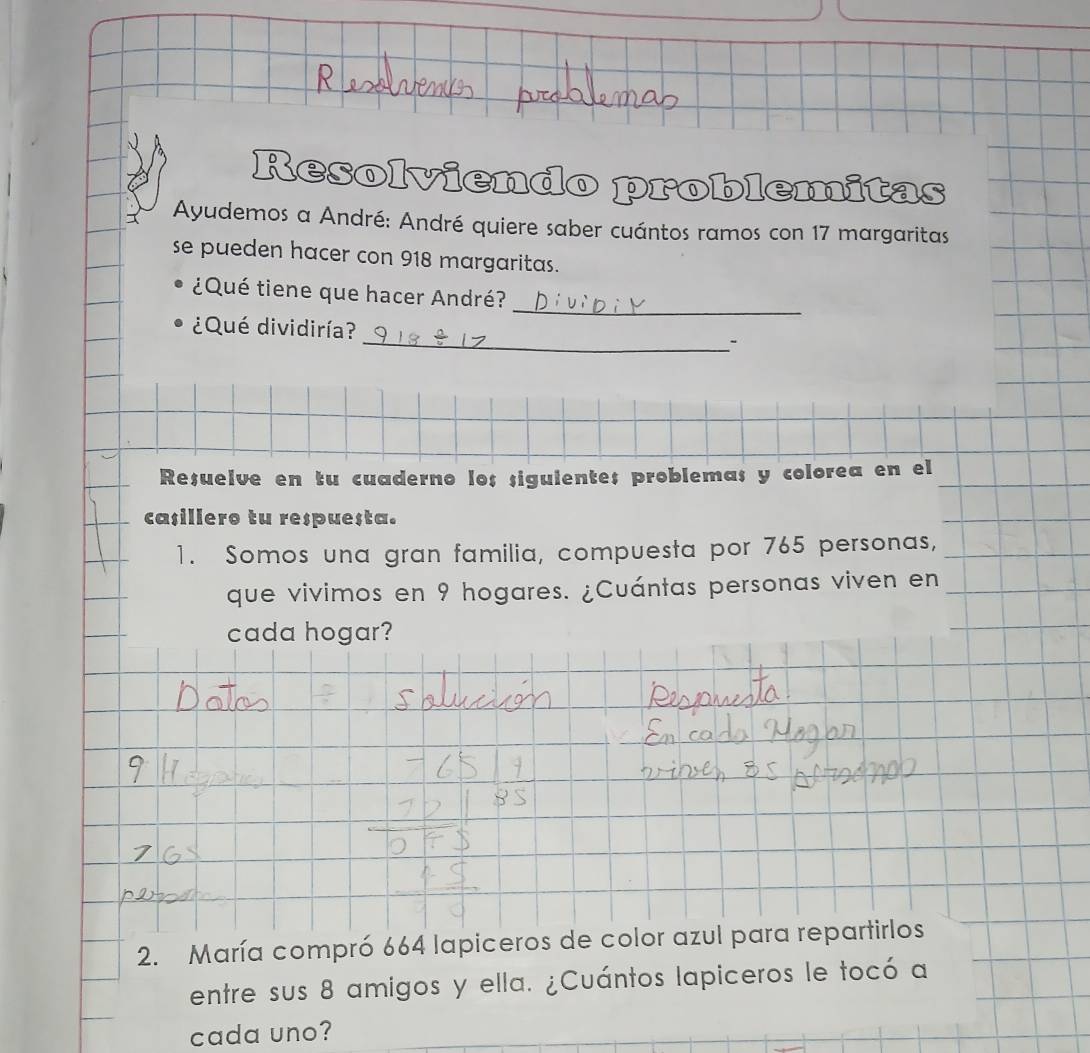 Resolvemos problemas
Resolviendo problemitas
Ayudemos a André: André quiere saber cuántos ramos con 17 margaritas
se pueden hacer con 918 margaritas.
• ¿Qué tiene que hacer André? DiviDir
• ¿Qué dividiría? 918 ÷ 17 -
Resuelve en tu cuaderno los siguientes problemas y colorea en el
casillero tu respuesta.
1. Somos una gran familia, compuesta por 765 personas,
que vivimos en 9 hogares. ¿Cuántas personas viven en
cada hogar?
Datos solución Respuesta
En cada Hogar
9 765 9 viven 85
72 85
765 045
45
2. María compró 664 lapiceros de color azul para repartirlos
entre sus 8 amigos y ella. ¿Cuántos lapiceros le tocó a
cada uno?